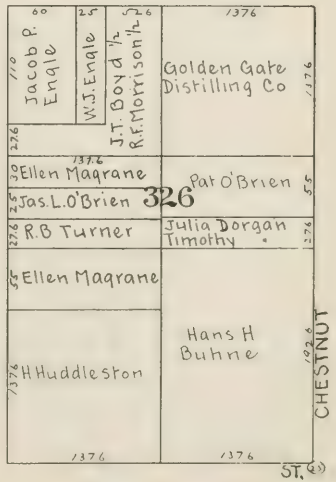 60
25
526
1376
110
Jacob P.
Engle
W.J. Engle
J.T. Boyd 1/2
R.F. Morrison 1/2
Golden Gate
Distilling Co
1376
276
137.6
30
Ellen Magrane
Pat O'Brien
55
326
25
Jas. L. O'Brien
276
R.B Turner
Julia Dorgan
Timothy
276
55
Ellen Magrane
Hans H
Buhne
1926
CHESTNUT
1376
H Huddleston
1376
1376
ST. (23)